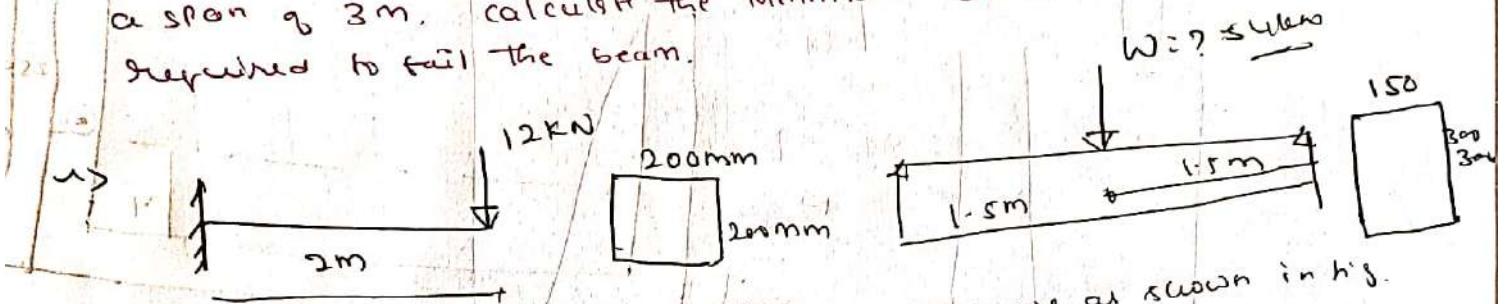 a span of 3m. calculate the
required to fail the beam.
W=?
12KN
200mm
150
200mm
1.5m
1.5m
300
2m
as shown in fig.